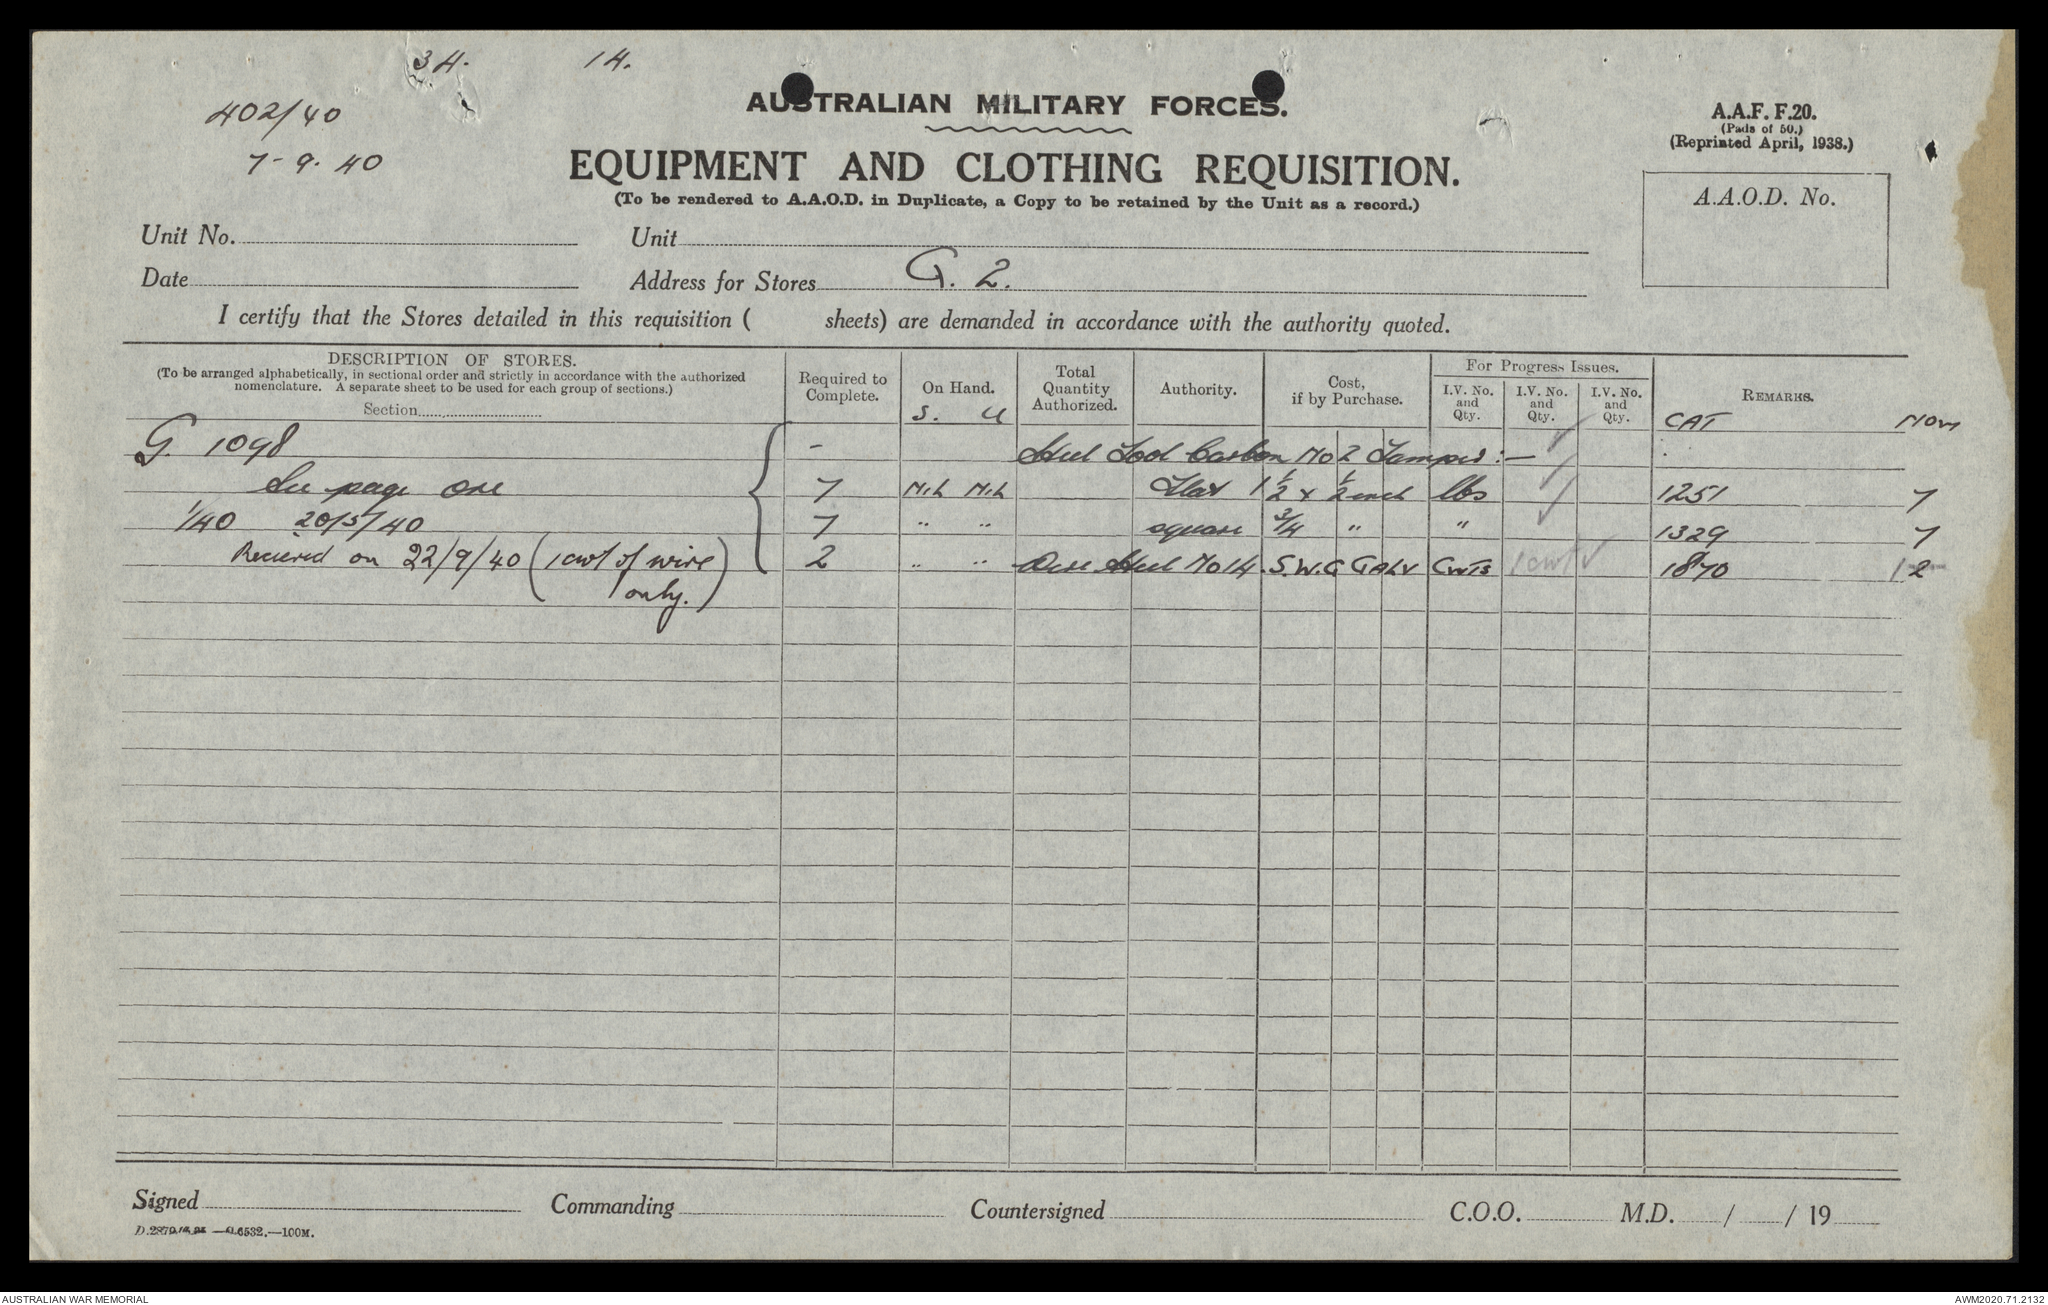 34. 14.
402/40
7-9.40
AUSTRALIAN MILITARY FORCES.
A.A.F. F.20.
(Pads of 50.)
(Reprinted April, 1938.)
EQUIPMENT AND CLOTHING REQUISITION.
(To be rendered to A.A.O.D. in Duplicate, a Copy to be retained by the Unit as a record.)
A.A.O.D. No.
Unit No. Unit
Date Address for Stores G. 2.
I certify that the Stores detailed in this requisition ( sheets) are demanded in accordance with the authority quoted.
DESCRIPTION OF STORES.
(To be arranged alphabetically, in sectional order and strictly in accordance with the authorized
nomenclature. A separate sheet to be used for each group of sections.)
Section
Required to
Complete.
On Hand.
S. U
Total
Quantity
Authorized.
Authority.
Cost,
if by Purchase.
For Progress Issues.
I.V. No.
and
Qty.
I.V. No.
and
Qty.
I.V. No.
and
Qty.
REMARKS.
CAT Now
G. 1098 - Steel Tool Carbon No 2 Temper :-
See page one 7 Nil Nil Flat 1 1/2 x 1/2 inch lbs 1251 7
1/40 20/5/40 7 " " square 3/4 " " 1329 7
Recieved on 22/9/40 (1 cwt of wire only.) 2 " " Wire Steel No 14. S.W.G GALV CWTS 1 cwt 1870 1 2
Signed Commanding Countersigned C.O.O. M.D. / / 19
6532.—100M.
AUSTRALIAN WAR MEMORIAL
AWM2020.71.2132